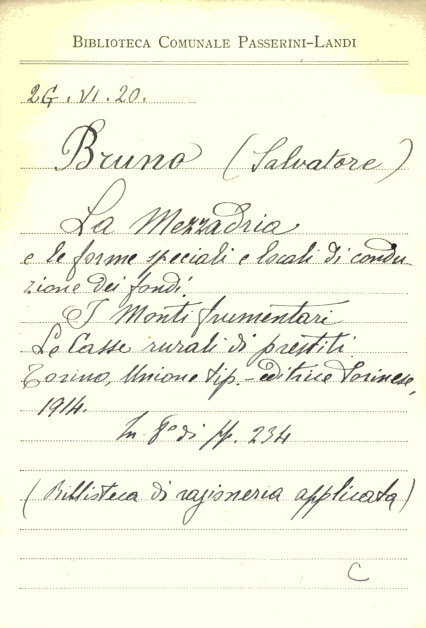 BIBLIOTECA COMUNALE PASSERINI-LANDI
2G.VI.20.
Bruno (Salvatore)
La Mezzadria
e le forme speciali e locali di condu
zione dei fondi.
I Monti frumentari
Le Casse rurali di prestiti.
Torino, Unione tip.-editrice Torinese,
1914.
In 8° di pp. 234
(Biblioteca di ragioneria applicata)
C